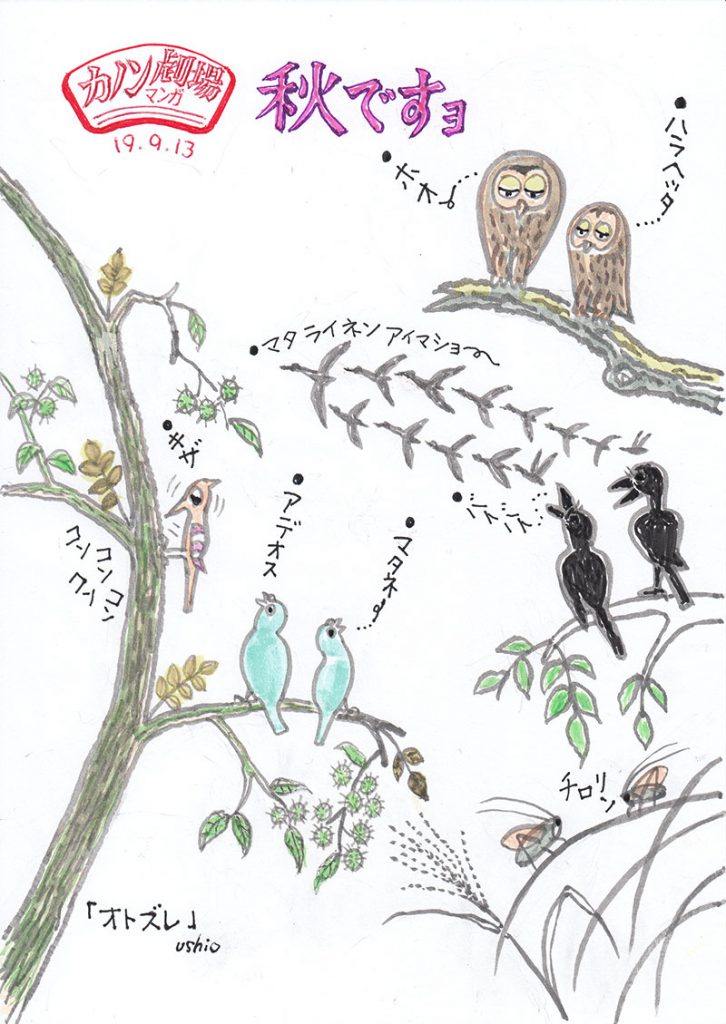 カノン劇場
マンガ
19.9.13
秋ですョ
ホオ〜
ハラヘッタ
マタ ライネン アイマショ〜
キザ
アデオス
マタネ〜
コンコン
コンコン
チロリン
「オトズレ」
ushio